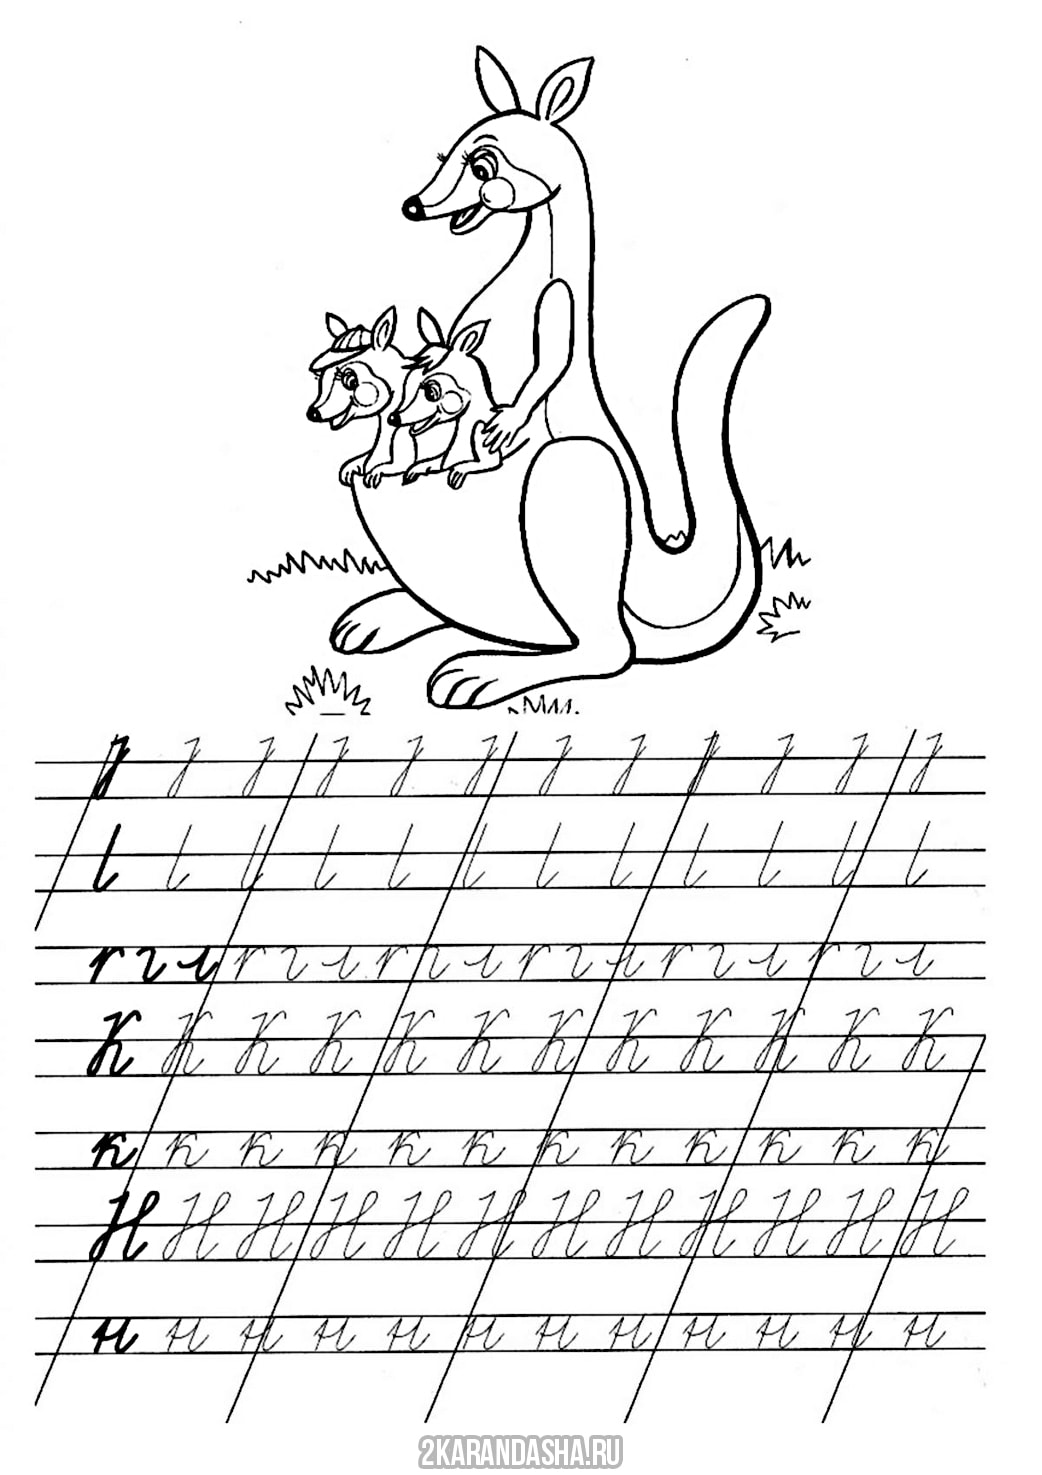 К К К К К К К К К К К К
к к к к к к к к к к к к
Н Н Н Н Н Н Н Н Н Н Н Н
н н н н н н н н н н н н
2KARANDASHA.RU